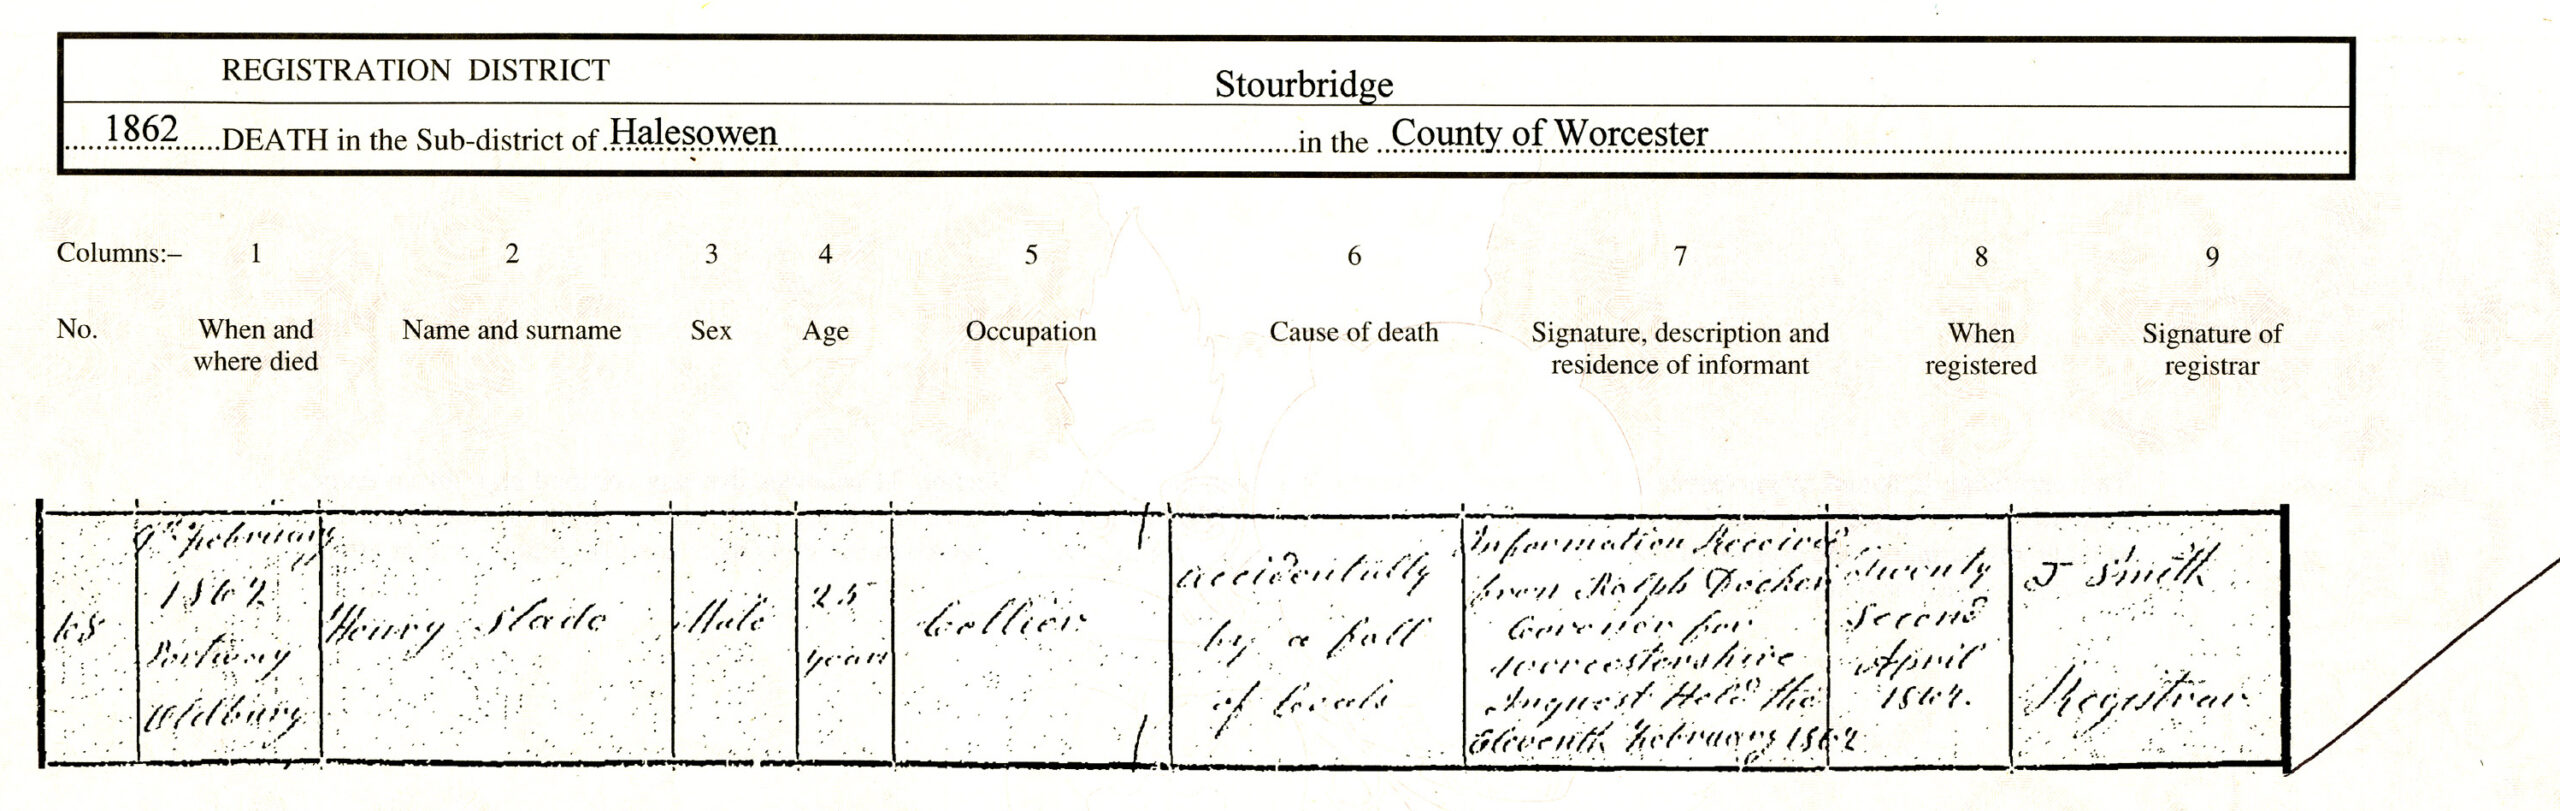 REGISTRATION DISTRICT Stourbridge
1862 DEATH in the Sub-district of Halesowen in the County of Worcester
Columns:– 1 2 3 4 5 6 7 8 9
No. When and where died Name and surname Sex Age Occupation Cause of death Signature, description and residence of informant When registered Signature of registrar
9th February
1862
Portway
Oldbury
Henry Slade
Male
25
years
Collier
Accidentally
by a fall
of Coals
Information Received
from Ralph Docker
Coroner for
Worcestershire
Inquest Held the
Eleventh February 1862
Twenty
Second
April
1862.
J Smith
Registrar